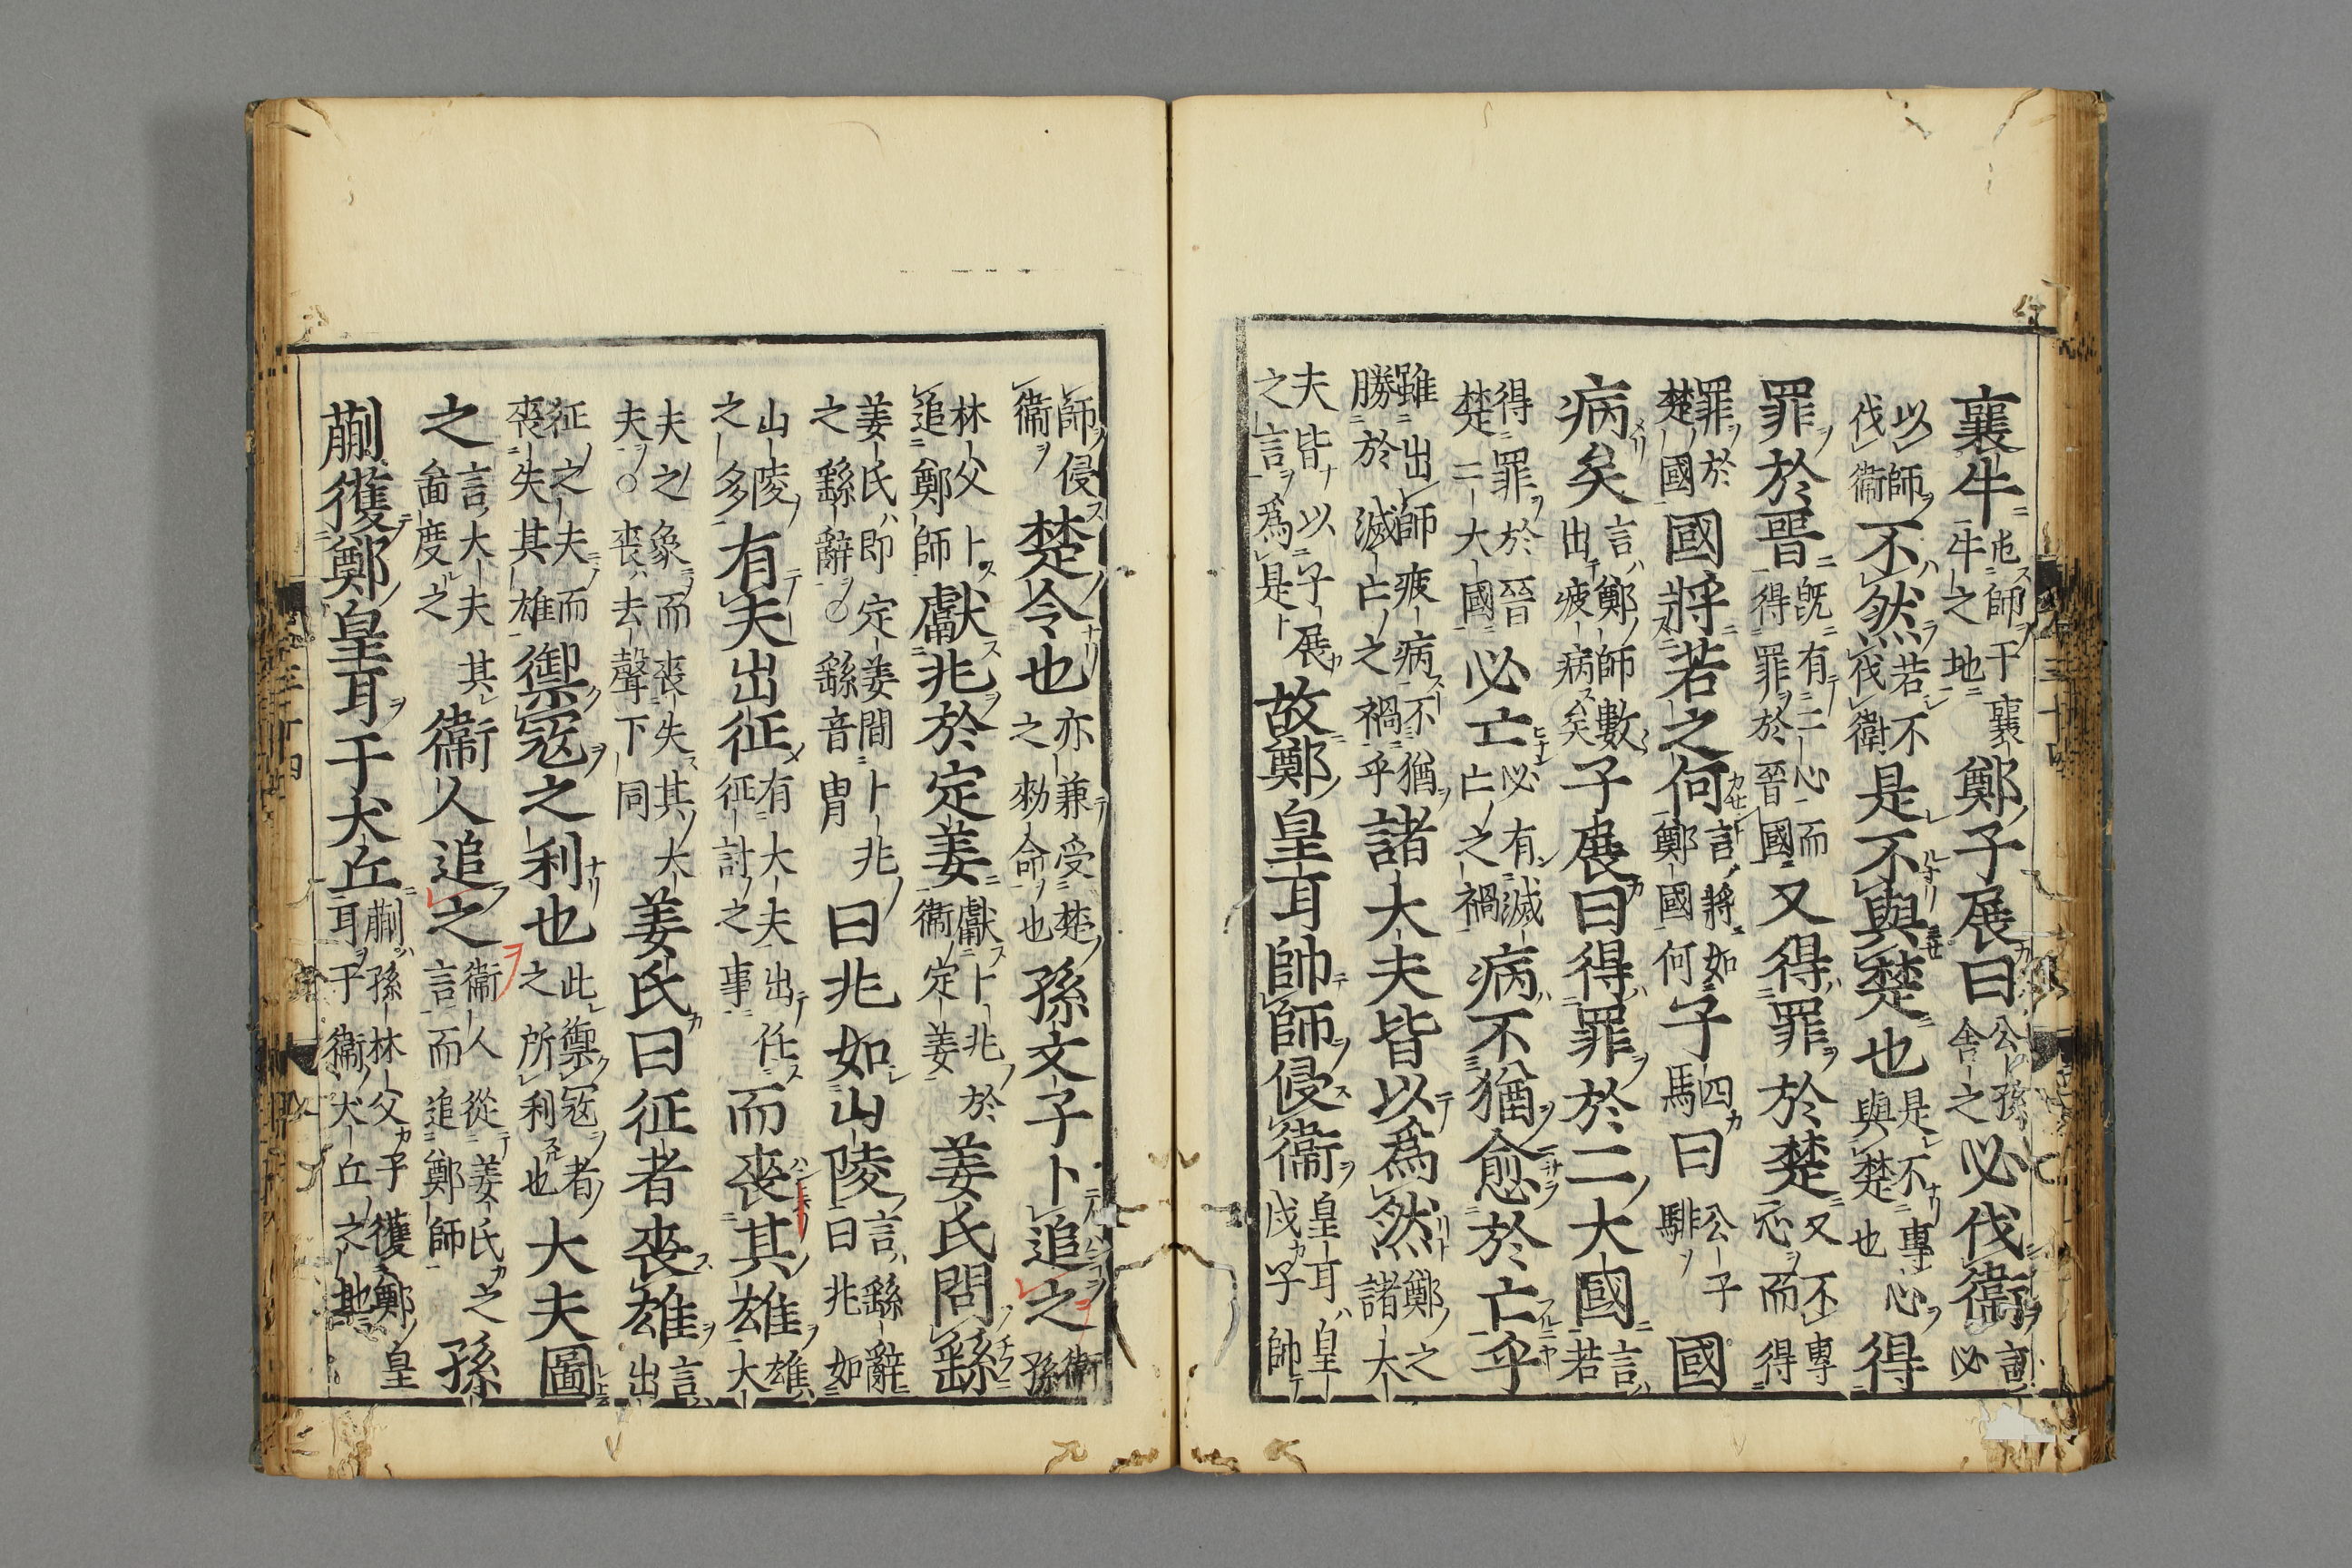 襄牛屯師于襄牛之地鄭子展曰公孫舍之必伐衞言必
以師伐衞不然若不伐衞是不與楚也是不專心與楚也得
罪於晉既有二心而得罪於晉國又得罪於楚又不專心而得
罪於楚國國將若之何言將如鄭國何子駟曰公子騑國
病矣言鄭師數出疲病矣子展曰得罪於二大國言若
得罪於晉楚二大國必亡必有滅亡之禍病不猶愈於亡乎
雖出師疲病不猶勝於滅亡之禍乎諸大夫皆以爲然鄭之諸大
夫皆以子展之言爲是故鄭皇耳帥師侵衞皇耳皇戌子帥
師侵衞楚令也亦兼受楚之勑命也孫文子卜追之衞孫
林父卜追鄭師獻兆於定姜獻卜兆於衞定姜姜氏問繇
姜氏即定姜問卜兆之繇辭○繇音冑曰兆如山陵言繇辭曰兆如
山陵之多有夫出征有大夫出任征討之事而喪其雄雄大
夫之象而喪失其大夫○喪去聲下同姜氏曰征者喪雄言出
征之夫而喪失其雄禦寇之利也此禦寇者之所利也大夫圖
之言大夫其啚度之衞人追之衞人從姜氏之言而追鄭師孫
蒯獲鄭皇耳于犬丘蒯孫林父子獲鄭皇耳于衞犬丘之地